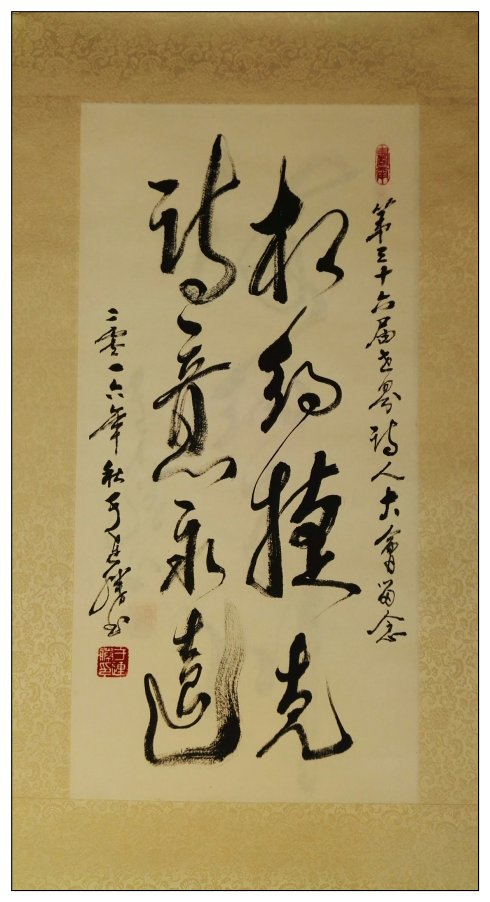 第三十六届世界诗人大會留念
相约捷克
诗意永远
二零一六年秋于连胜书
于連勝印